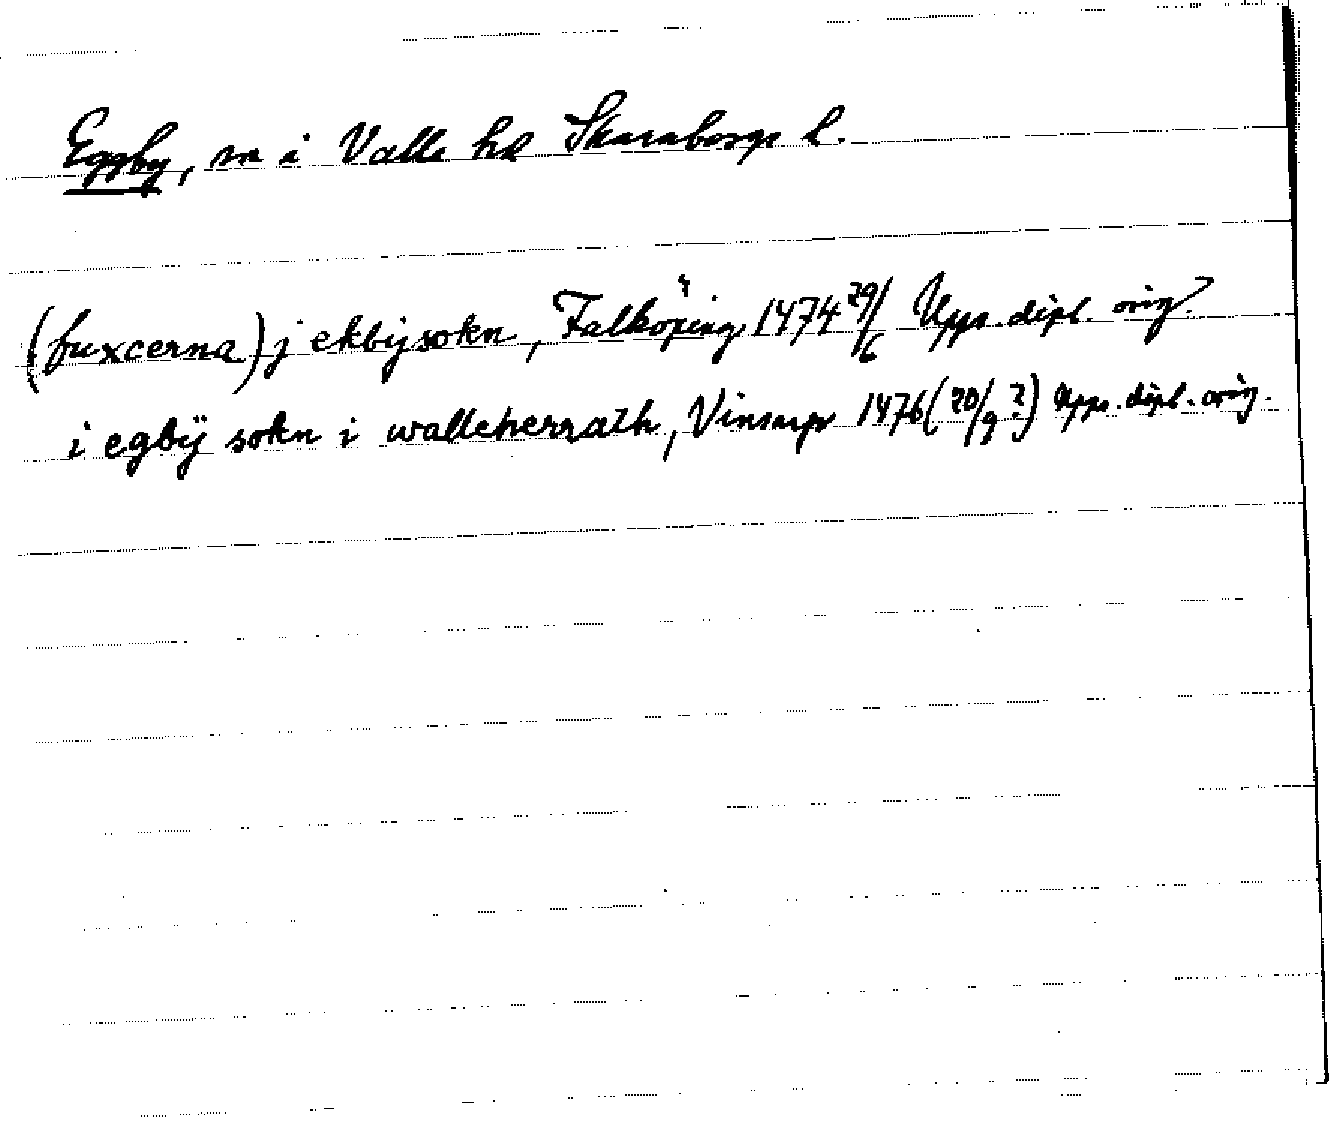 Eggby, sn i Valle hd Skaraborgs l.
(fuxcerna) j ekbijsokn, Falköping 1474 29/6 Upps. dipl. orig.
i egbÿ sokn i walleherrath, Vinsarp 1476 (20/9 ?) Upps. dipl. orig.